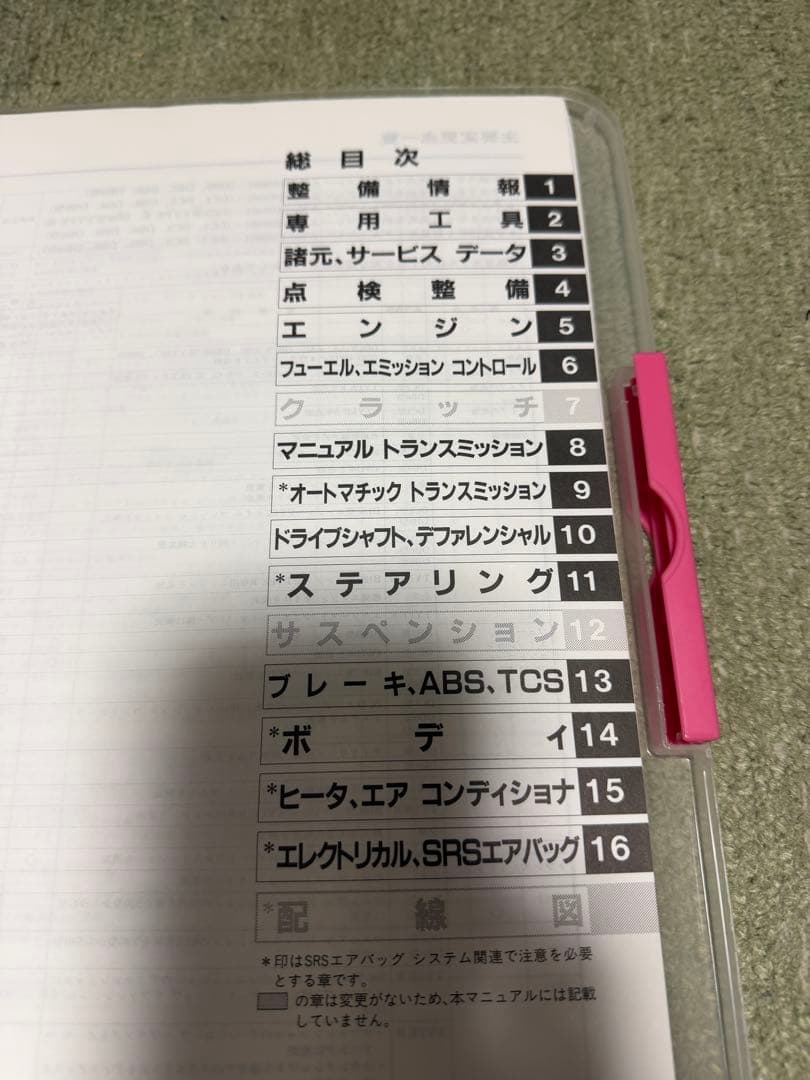 総目次
整備情報 1
専用工具 2
諸元、サービス データ 3
点検整備 4
エンジン 5
フューエル、エミッション コントロール 6
クラッチ 7
マニュアル トランスミッション 8
*オートマチック トランスミッション 9
ドライブシャフト、デファレンシャル 10
*ステアリング 11
サスペンション 12
ブレーキ、ABS、TCS 13
*ボディ 14
*ヒータ、エア コンディショナ 15
*エレクトリカル、SRSエアバッグ 16
*配線図
*印はSRSエアバッグ システム関連で注意を必要
とする章です。
の章は変更がないため、本マニュアルには記載
していません。